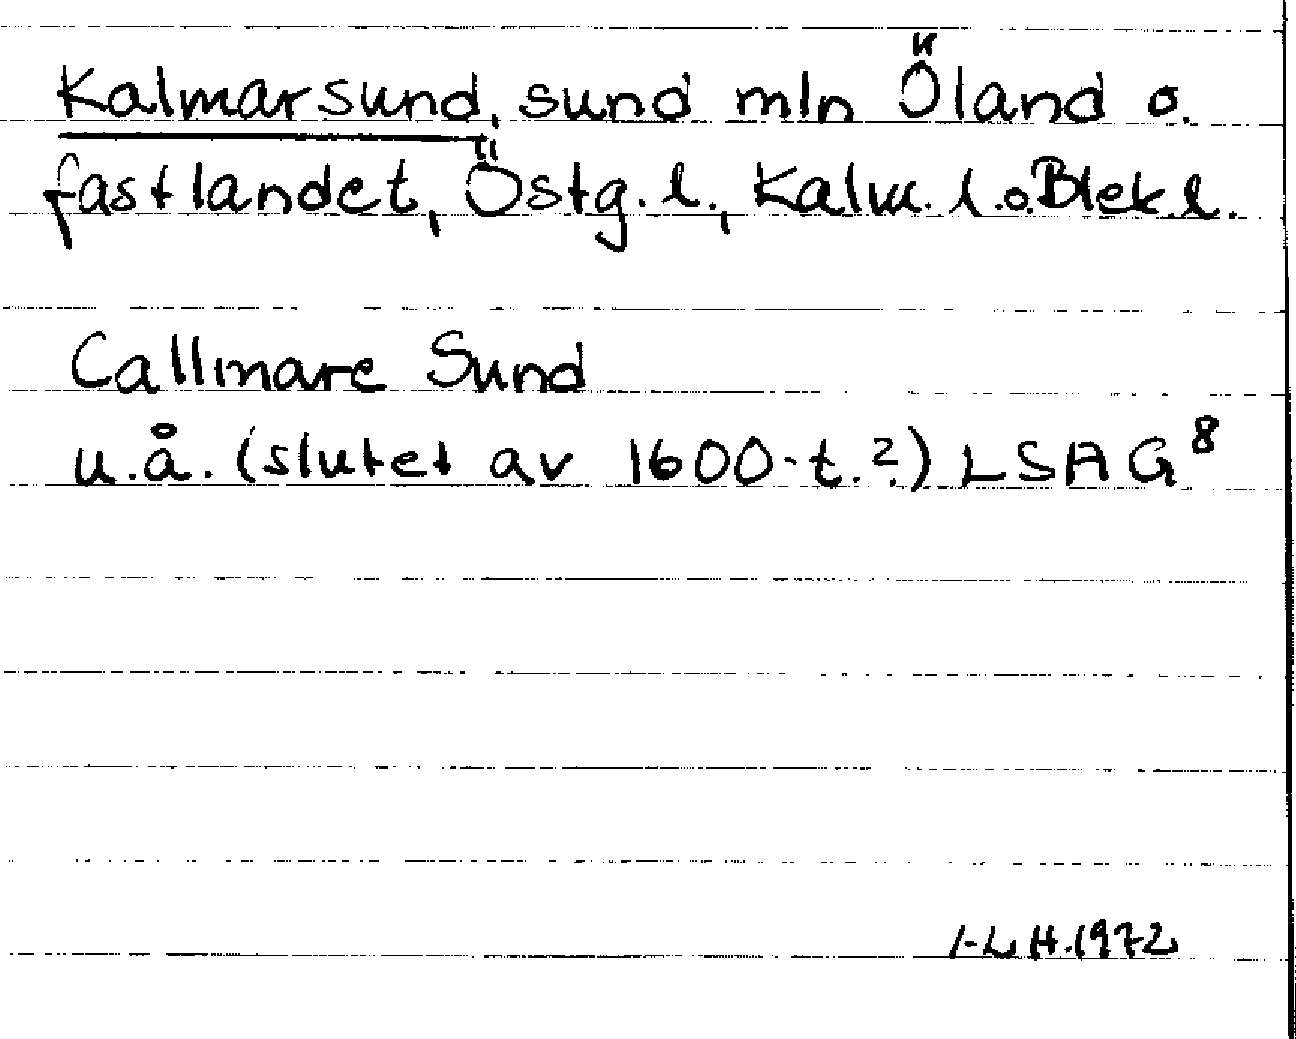 Kalmarsund, sund mln Öland o.
fastlandet, Östg. l., Kalm. l. o. Blek. l.
Callmare Sund
u.å. (slutet av 1600-t.?) LSA G⁸
I-L H. 1972